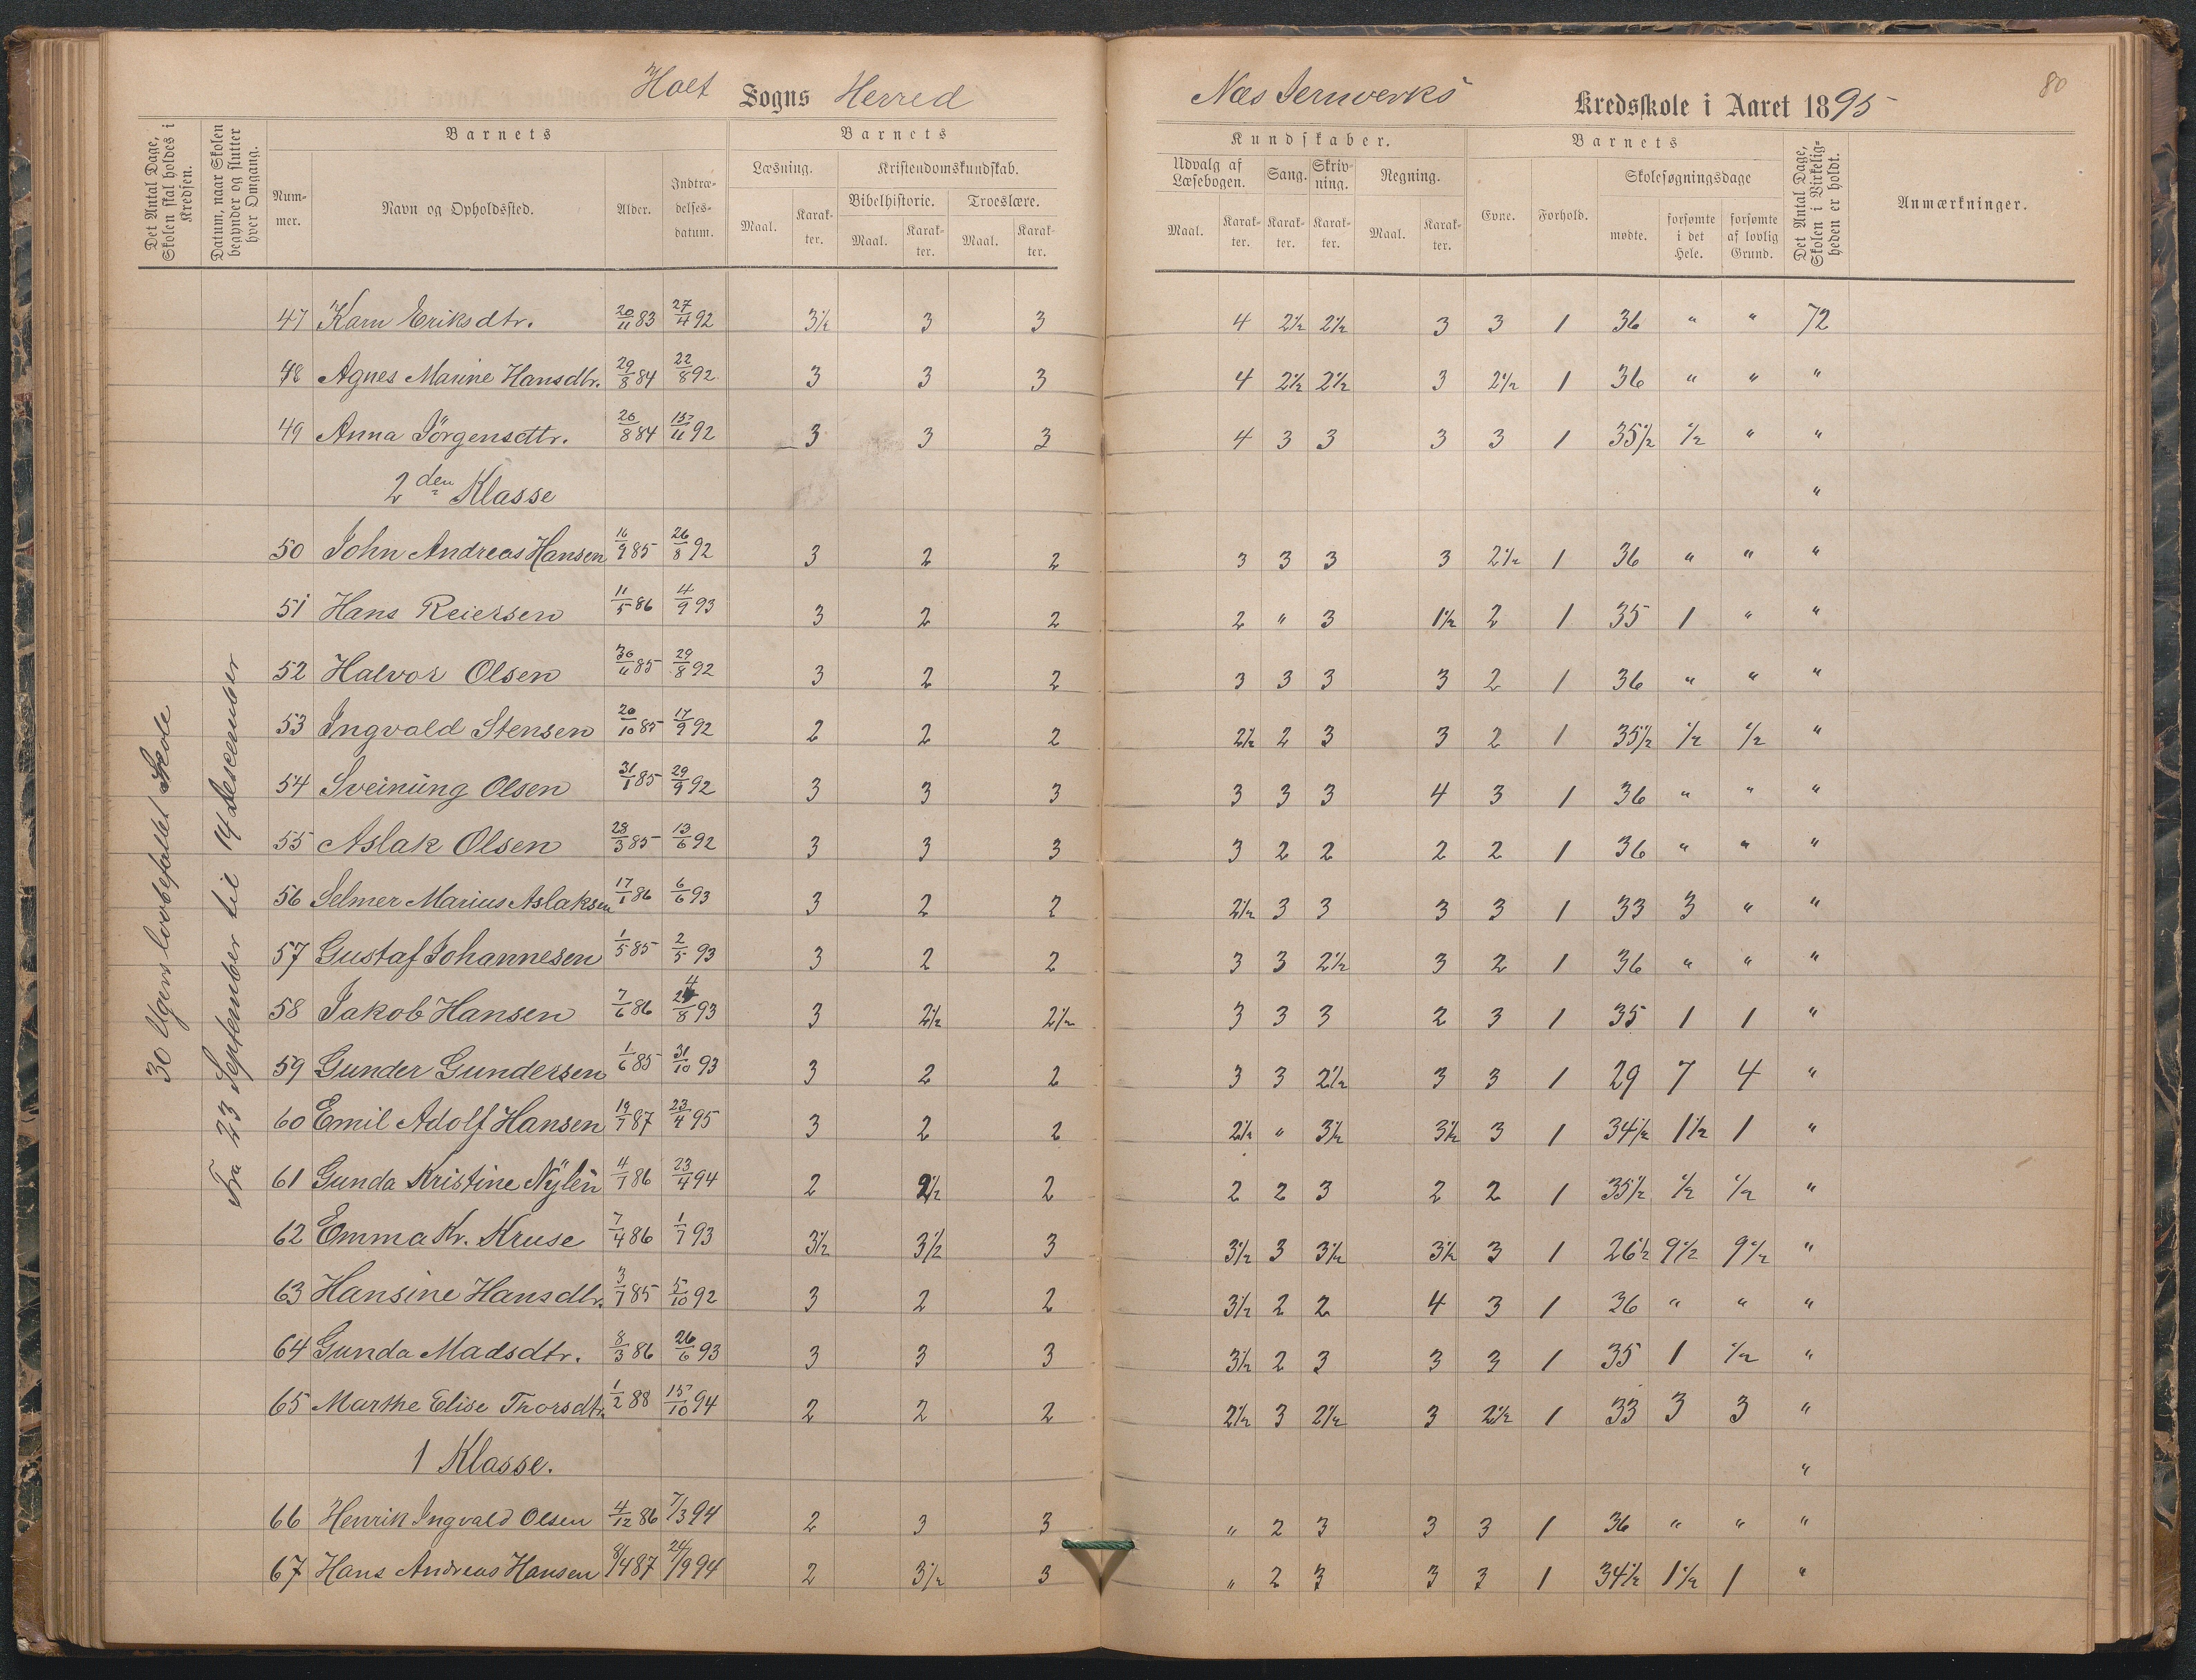 Holt Sogns Herred
Næs Jernverks Kredsskole i Aaret 1895
80
Det Antal Dage, Skolen skal holdes i Kredsen.
Datum, naar Skolen begynder og slutter hver Omgang.
Barnets
Num-mer.
Navn og Opholdssted.
Alder.
Indtræ-delses-datum.
Barnets
Læsning.
Maal.
Karak-ter.
Kristendomskundskab.
Bibelhistorie.
Maal.
Karak-ter.
Troeslære.
Maal.
Karak-ter.
Kundskaber.
Udvalg af Læsebogen.
Maal.
Karak-ter.
Sang.
Karak-ter.
Skriv-ning.
Karak-ter.
Regning.
Maal.
Karak-ter.
Barnets
Evne.
Forhold.
Skolesøgningsdage
mødte.
forsømte i det Hele.
forsømte af lovlig Grund.
Det Antal Dage, Skolen i Virkelig-heden er holdt.
Anmærkninger.
30 Ugers lovbefallet Skole
Fra 23 September til 14 Desember
47 Karn Eriksdtr. 20/11 83 27/4 92 3½ 3 3 4 2½ 2½ 3 3 1 36 " " 72
48 Agnes Marine Hansdtr. 29/8 84 22/8 92 3 3 3 4 2½ 2½ 3 2½ 1 36 " " "
49 Anna Jörgensdtr. 26/8 84 15/11 92 3 3 3 4 3 3 3 3 1 35½ ½ " "
2den Klasse "
50 John Andreas Hansen 16/9 85 26/8 92 3 2 2 3 3 3 3 2½ 1 36 " " "
51 Hans Reiersen 11/5 86 4/9 93 3 2 2 2 " 3 1½ 2 1 35 1 " "
52 Halvor Olsen 30/11 85 29/8 92 3 2 2 3 3 3 3 2 1 36 " " "
53 Ingvald Stensen 20/10 85 17/9 92 2 2 2 2½ 2 3 3 2 1 35½ ½ ½ "
54 Sveinung Olsen 31/1 85 29/9 92 3 3 3 3 3 3 4 3 1 36 " " "
55 Aslak Olsen 28/3 85 13/6 92 3 3 3 3 2 2 2 2 1 36 " " "
56 Selmer Marius Aslaksen 17/1 86 6/6 93 3 2 2 2½ 3 3 3 3 1 33 3 " "
57 Gustaf Johannesen 1/5 85 2/5 93 3 2 2 3 3 2½ 3 2 1 36 " " "
58 Jakob Hansen 7/6 86 24/8 93 3 2½ 2½ 3 3 3 2 3 1 35 1 1 "
59 Gunder Gundersen 1/6 85 31/10 93 3 2 2 3 3 2½ 3 3 1 29 7 4 "
60 Emil Adolf Hansen 19/7 87 23/4 95 3 2 2 2½ " 3½ 3½ 3 1 34½ 1½ 1 "
61 Gunda Kristine Nylén 4/7 86 23/4 94 2 2½ 2 2 2 3 2 2 1 35½ ½ ½ "
62 Emma Kr. Kruse 7/4 86 1/7 93 3½ 3½ 3 3½ 3 3½ 3½ 3 1 26½ 9½ 9½ "
63 Hansine Hansdtr. 3/7 85 5/10 92 3 2 2 3½ 2 2 4 3 1 36 " " "
64 Gunda Madsdtr. 8/3 86 26/6 93 3 3 3 3½ 2 3 3 3 1 35 1 ½ "
65 Marthe Elise Thorsdtr. 1/2 88 15/10 94 2 2 2 2½ 3 2½ 3 2½ 1 33 3 3 "
1 Klasse. "
66 Henrik Ingvald Olsen 4/12 86 7/3 94 2 3 3 " 2 3 3 3 1 36 " " "
67 Hans Andreas Hansen 8/4 87 24/9 94 2 3½ 3 " 2 3 3 3 1 34½ 1½ 1 "